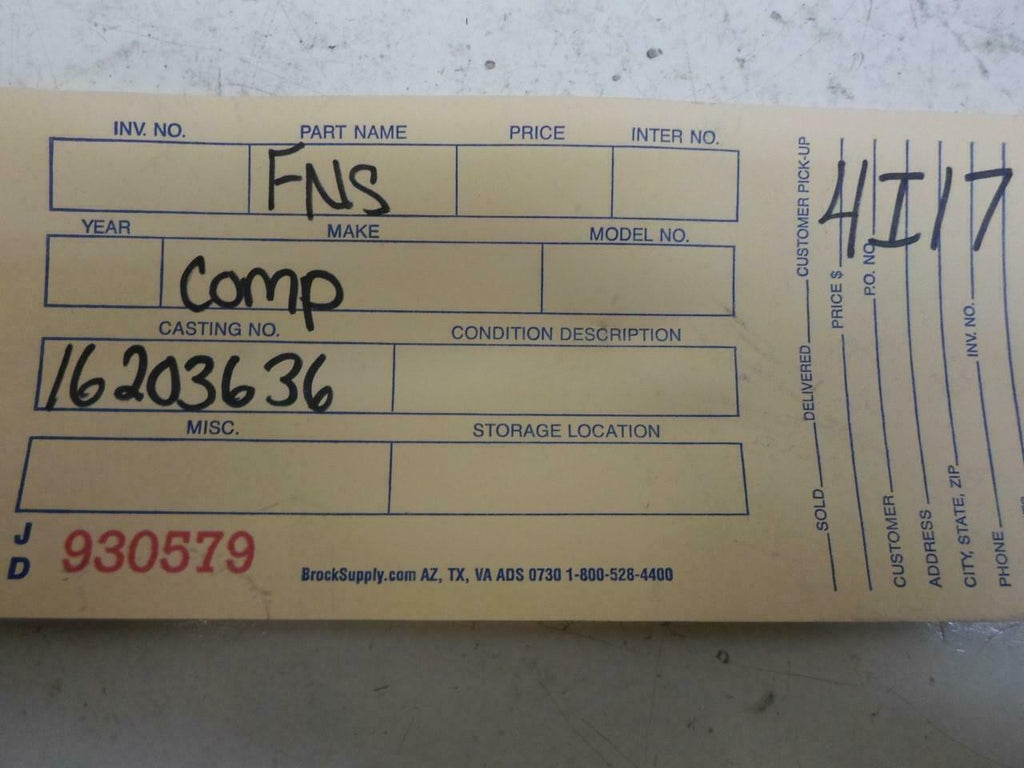 INV. NO. PART NAME PRICE INTER NO.
FNS
YEAR MAKE MODEL NO.
Comp
CASTING NO. CONDITION DESCRIPTION
16203636
MISC. STORAGE LOCATION
J D 930579
BrockSupply.com AZ, TX, VA ADS 0730 1-800-528-4400
SOLD DELIVERED CUSTOMER PICK-UP
PRICE $
P.O. NO.
CUSTOMER
ADDRESS
CITY, STATE, ZIP INV. NO.
PHONE
4I17